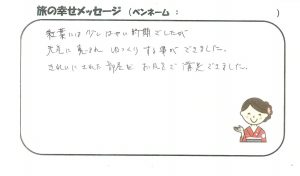 旅の幸せメッセージ (ペンネーム : )
紅葉には少しはやい時期でしたが
天気に恵まれ ゆっくりする事ができました。
きれいにされた部屋と お風呂で 満足できました。